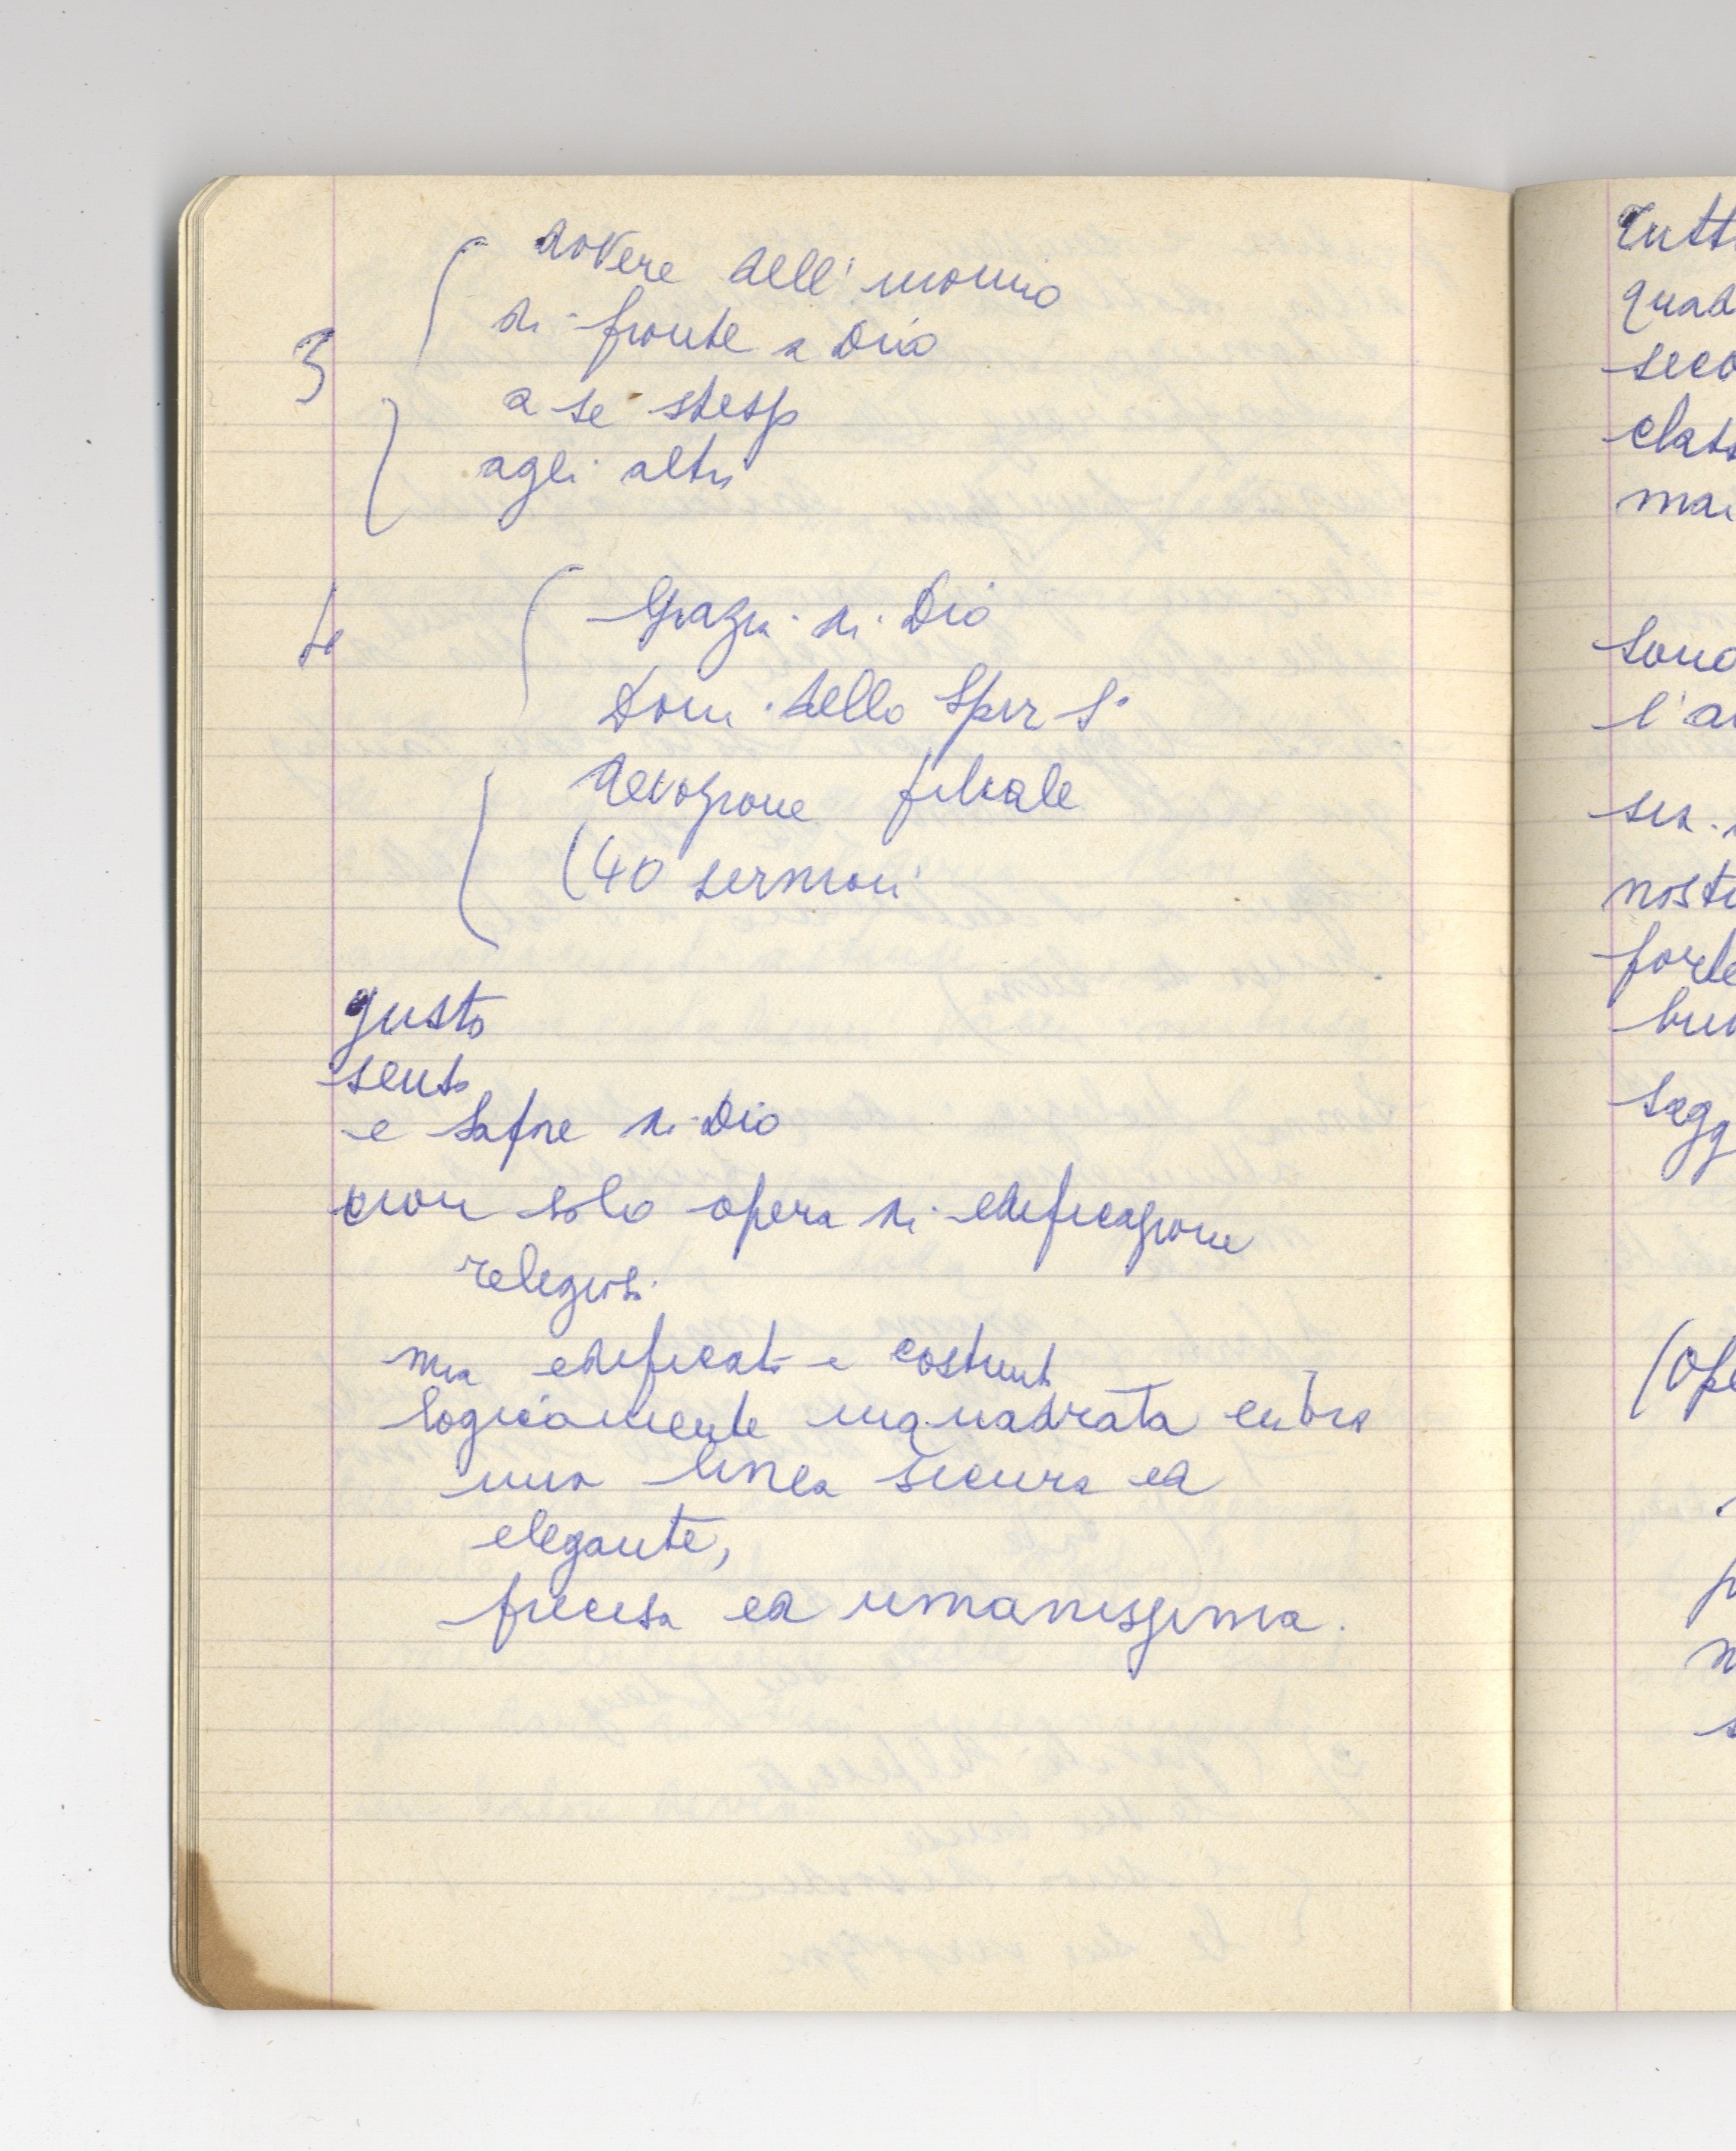 dovere dell'uomo
di fronte a Dio
3
a se stesso
agli altri
Grazia di Dio
4
Doni dello Spir S°
devozione filiale
(40 sermoni
gusto
senso
e sapore di Dio
non solo opera di edificazione
religiosa
ma edificata e costruita
logicamente inquadrata entro
una linea sicura ed
elegante,
precisa ed umanissima.
Tutt
quad
seco
class
mai
sono
l'a
sia
nostr
forte
sagg
(Ope